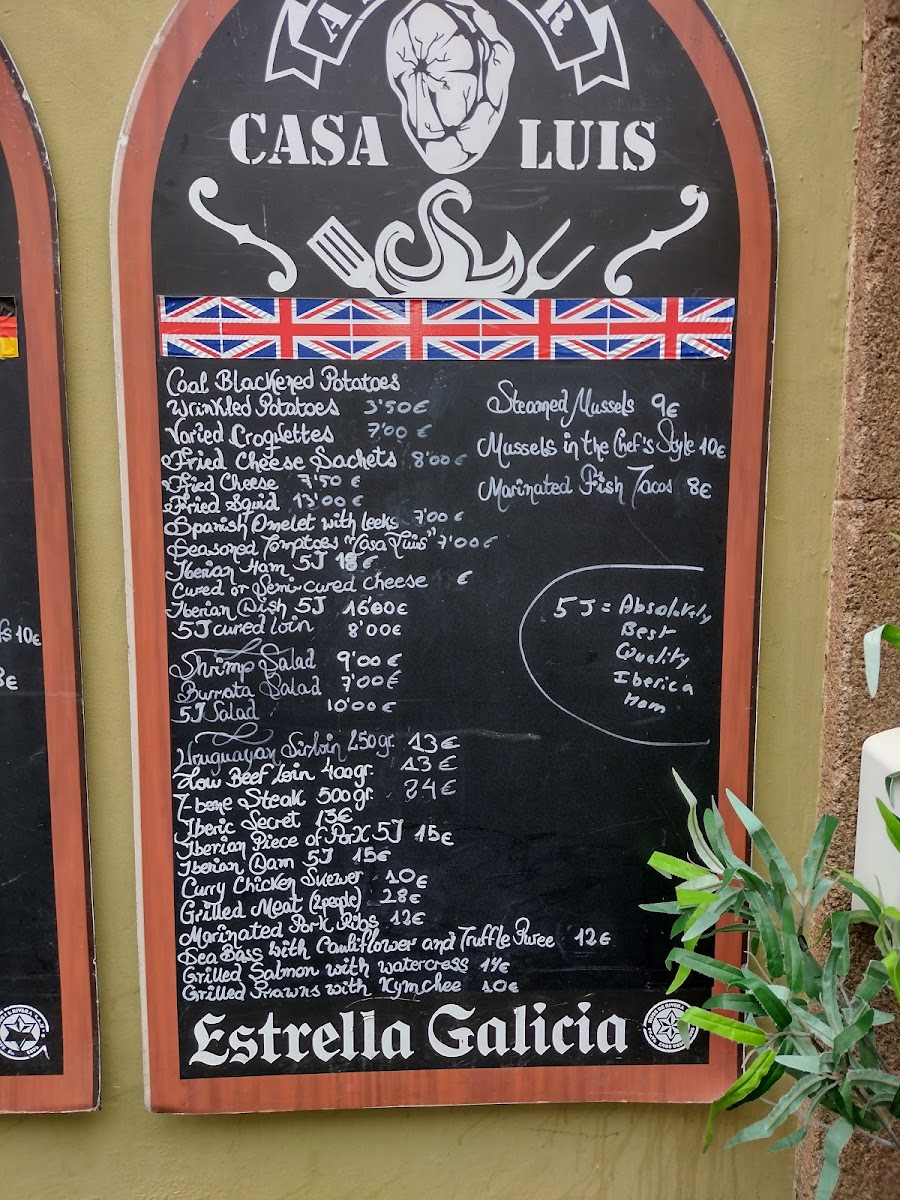 CASA LUIS
Coal Blackened Potatoes
Wrinkled Potatoes 3'50€
Varied Croquettes 7'00€
Fried Cheese Sachets 8'00€
Fried Cheese 7'50€
Fried Squid 13'00€
Spanish Omelet with leeks 7'00€
Seasoned Tomatoes "Casa Luis" 7'00€
Iberian Ham 5J 18€
Cured or Semi-cured cheese €
Iberian Dish 5J 16'00€
5J cured loin 8'00€
Shrimp Salad 9'00€
Burrata Salad 7'00€
5J Salad 10'00€
Uruguayan Sirloin 250gr. 13€
Low Beef loin 400gr. 13€
T-bone Steak 500gr. 24€
Iberic Secret 13€
Iberian Piece of Pork 5J 15€
Iberian Dam 5J 15€
Curry Chicken Skewer 10€
Grilled Meat (2people) 28€
Marinated Pork Ribs 12€
Sea Bass with Cauliflower and Truffle Puree 12€
Grilled Salmon with watercress 14€
Grilled Prawns with Kymchee 10€
Steamed Mussels 9€
Mussels in the Chef's Style 10€
Marinated Fish Tacos 8€
5J = Absolutely
Best
Quality
Iberica
Ham
Estrella Galicia
10€
8€